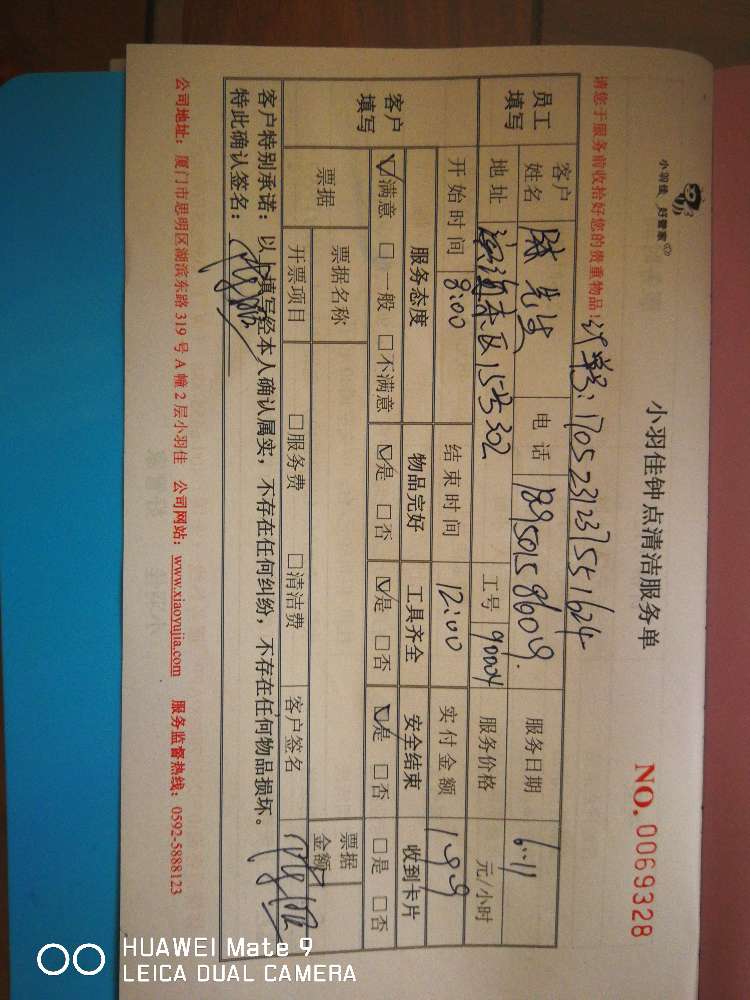 小羽佳 好管家
小羽佳钟点清洁服务单
NO. 0069328
请您于服务前收拾好您的贵重物品!
订单号: 17052312375551624
员工填写
客户姓名 陈先生 电话 18950158609 服务日期 6.11
地址 东区15号302 工号 90004 服务价格 元/小时
开始时间 8:00 结束时间 12:00 实付金额 199
客户填写
服务态度 物品完好 工具齐全 安全结束 收到卡片
☑满意 □一般 □不满意 ☑是 □否 ☑是 □否 ☑是 □否 □是 □否
票据 票据名称 票据金额
开票项目 □服务费 □清洁费 客户签名
客户特别承诺:以上填写经本人确认属实,不存在任何纠纷,不存在任何物品损坏。
特此确认签名:
公司地址:厦门市思明区湖滨东路319号A幢2层小羽佳 公司网站:www.xiaoyujia.com 服务监督热线:0592-5888123
HUAWEI Mate 9
LEICA DUAL CAMERA